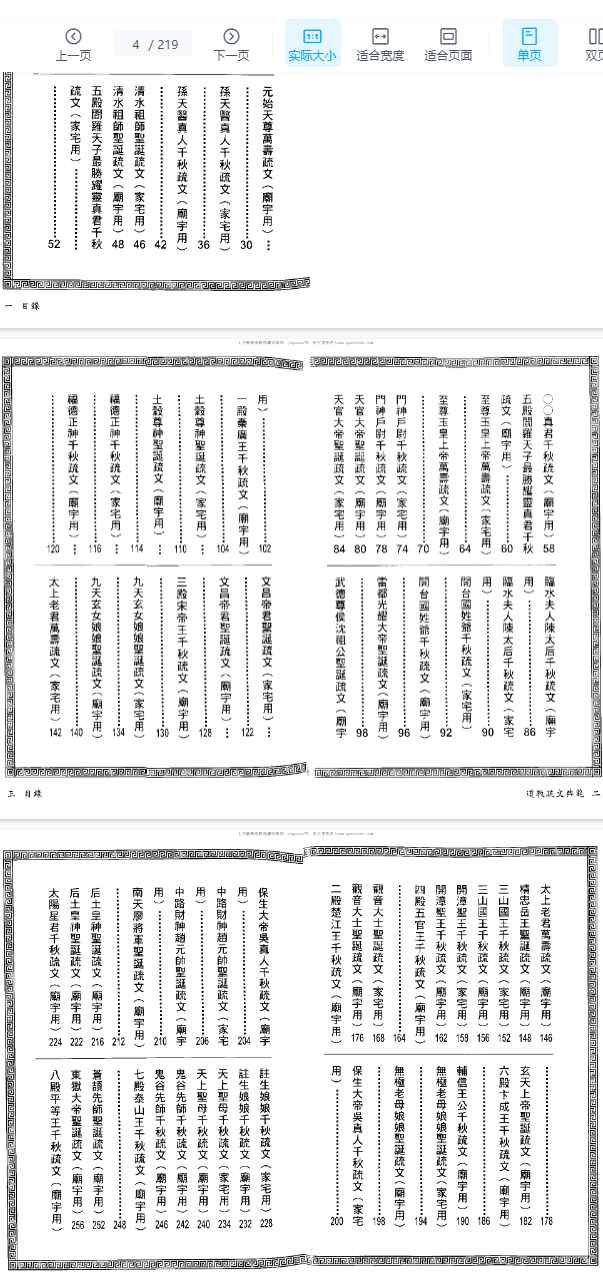 上一页
4 / 219
下一页
实际大小
适合宽度
适合页面
单页
双
元始天尊萬壽疏文（廟宇用）…
……30
孫天醫真人千秋疏文（家宅用）
……36
孫天醫真人千秋疏文（廟宇用）
……42
清水祖師聖誕疏文（家宅用）46
清水祖師聖誕疏文（廟宇用）48
五殿閻羅天子最勝耀靈真君千秋
疏文（家宅用）……
……52
一 目錄
○○真君千秋疏文（廟宇用）58
五殿閻羅天子最勝耀靈真君千秋
疏文（廟宇用）……60
至尊玉皇上帝萬壽疏文（家宅用）
……64
至尊玉皇上帝萬壽疏文（廟宇用）
……70
門神戶尉千秋疏文（家宅用）74
門神戶尉千秋疏文（廟宇用）78
天官大帝聖誕疏文（廟宇用）80
天官大帝聖誕疏文（家宅用）84
臨水夫人陳太后千秋疏文（廟宇
用）……86
臨水夫人陳太后千秋疏文（家宅
用）……90
開台國姓爺千秋疏文（家宅用）
……92
開台國姓爺千秋疏文（廟宇用）
……96
雷都光耀大帝聖誕疏文（廟宇用）
……98
武德尊侯沈祖公聖誕疏文（廟宇
道教疏文典範 二
用）……102
一殿秦廣王千秋疏文（廟宇用）
……104
土穀尊神聖誕疏文（家宅用）…
……110
土穀尊神聖誕疏文（廟宇用）…
……114
福德正神千秋疏文（家宅用）…
……116
福德正神千秋疏文（廟宇用）…
……120
文昌帝君聖誕疏文（家宅用）…
……122
文昌帝君聖誕疏文（廟宇用）…
……128
三殿宋帝王千秋疏文（廟宇用）
……130
九天玄女娘娘聖誕疏文（家宅用）
……134
九天玄女娘娘聖誕疏文（廟宇用）
……140
太上老君萬壽疏文（家宅用）142
三 目錄
太上老君萬壽疏文（廟宇用）146
精忠岳王聖誕疏文（廟宇用）148
三山國王千秋疏文（家宅用）152
三山國王千秋疏文（廟宇用）156
開漳聖王千秋疏文（家宅用）159
開漳聖王千秋疏文（廟宇用）162
四殿五官王千秋疏文（廟宇用）
……164
觀音大士聖誕疏文（家宅用）168
觀音大士聖誕疏文（廟宇用）176
二殿楚江王千秋疏文（廟宇用）
……178
玄天上帝聖誕疏文（廟宇用）182
六殿卞成王千秋疏文（廟宇用）
……186
輔信王公千秋疏文（廟宇用）190
無極老母娘娘聖誕疏文（家宅用）
……194
無極老母娘娘聖誕疏文（廟宇用）
……198
保生大帝吳真人千秋疏文（家宅
用）……200
保生大帝吳真人千秋疏文（廟宇
用）……204
中路財神趙元帥聖誕疏文（家宅
用）……206
中路財神趙元帥聖誕疏文（廟宇
用）……210
南天廖將軍聖誕疏文（廟宇用）
……212
后土皇神聖誕疏文（廟宇用）216
后土皇神聖誕疏文（廟宇用）222
太陽星君千秋疏文（廟宇用）224
註生娘娘千秋疏文（家宅用）228
註生娘娘千秋疏文（廟宇用）232
天上聖母千秋疏文（家宅用）234
天上聖母千秋疏文（廟宇用）240
鬼谷先師千秋疏文（廟宇用）242
鬼谷先師千秋疏文（家宅用）246
七殿泰山王千秋疏文（廟宇用）
……248
蒼頡先師聖誕疏文（廟宇用）252
東嶽大帝聖誕疏文（廟宇用）256
八殿平等王千秋疏文（廟宇用）